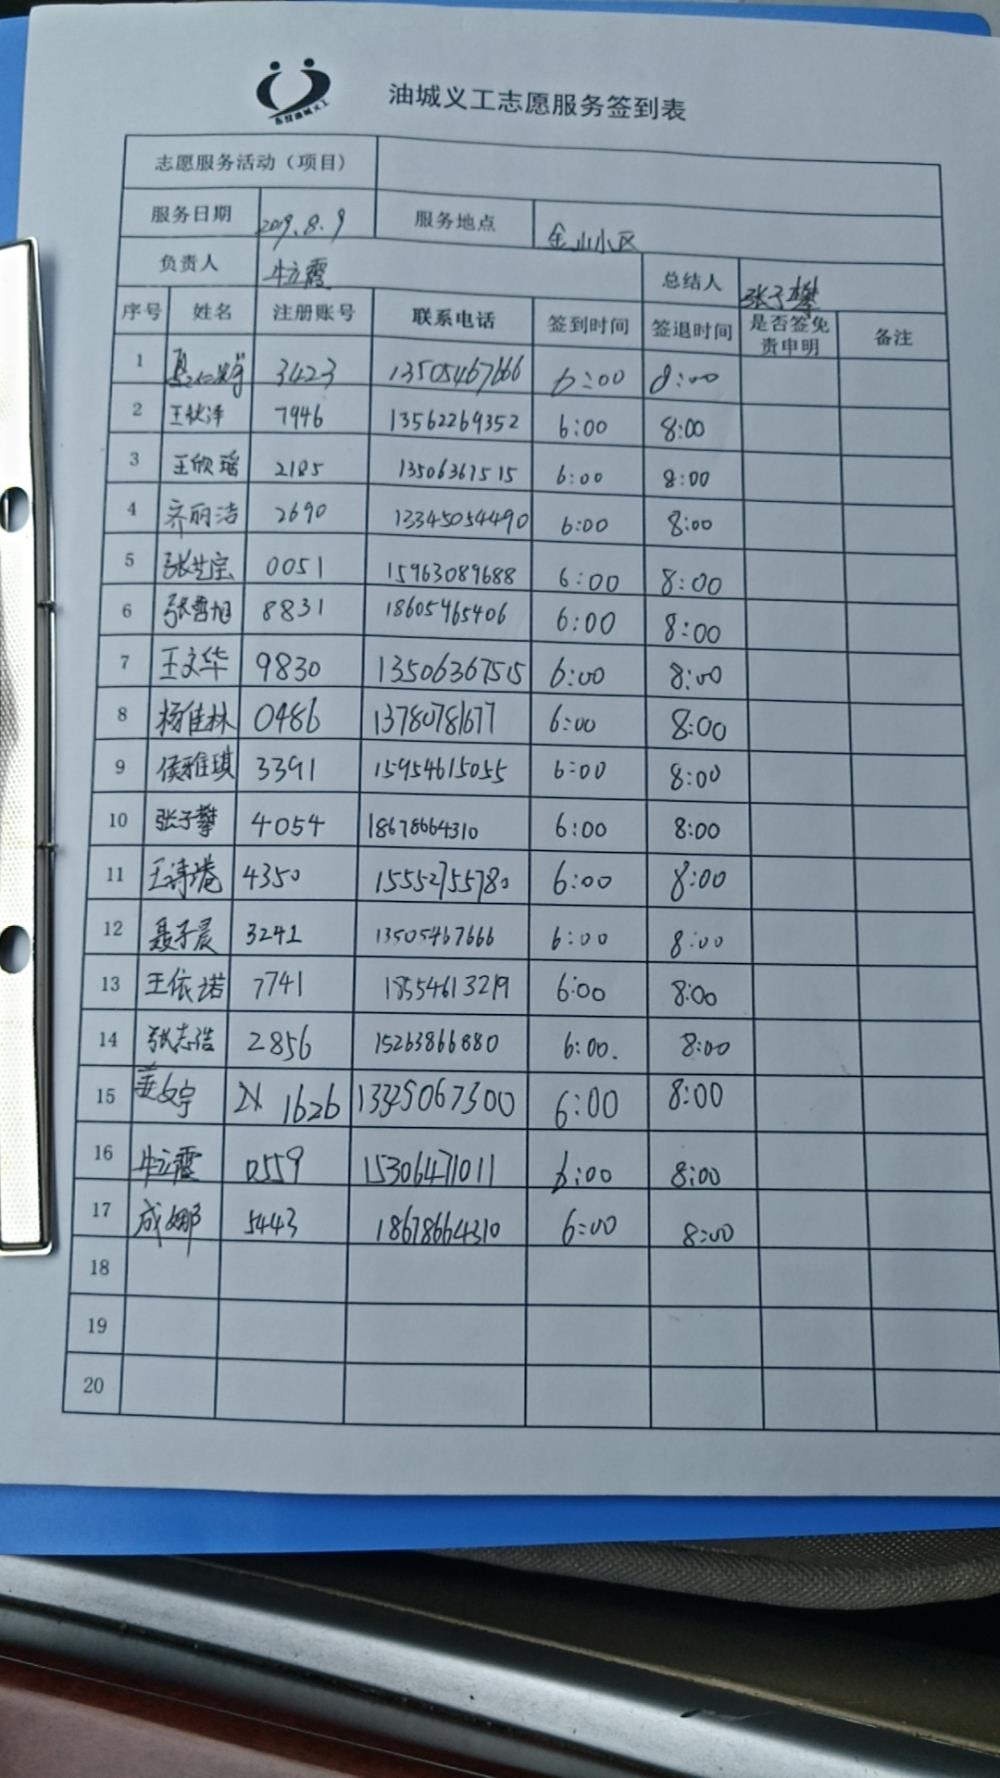 东营油城义工
油城义工志愿服务签到表
志愿服务活动（项目）
服务日期 2019.8.9 服务地点 金山小区
负责人 牛立霞 总结人 张子攀
序号 姓名 注册账号 联系电话 签到时间 签退时间 是否签免责申明 备注
1 3423 13505467666 6:00 8:00
2 王秋泽 7946 13562269352 6:00 8:00
3 王欣瑶 2185 13506367515 6:00 8:00
4 齐丽洁 2690 13345054490 6:00 8:00
5 张艺宝 0051 15963089688 6:00 8:00
6 张哲旭 8831 18605465406 6:00 8:00
7 王文华 9830 13506367515 6:00 8:00
8 杨佳林 0486 13780781677 6:00 8:00
9 侯雅琪 3391 15954615055 6:00 8:00
10 张子攀 4054 18678664310 6:00 8:00
11 王诗涵 4350 15552755780 6:00 8:00
12 聂子晨 3241 13505467666 6:00 8:00
13 王依诺 7741 18554613219 6:00 8:00
14 张志浩 2856 15263866880 6:00. 8:00
15 姜文宇 1626 13345067300 6:00 8:00
16 牛立霞 0559 15306471011 6:00 8:00
17 成娜 5443 18678664310 6:00 8:00
18
19
20